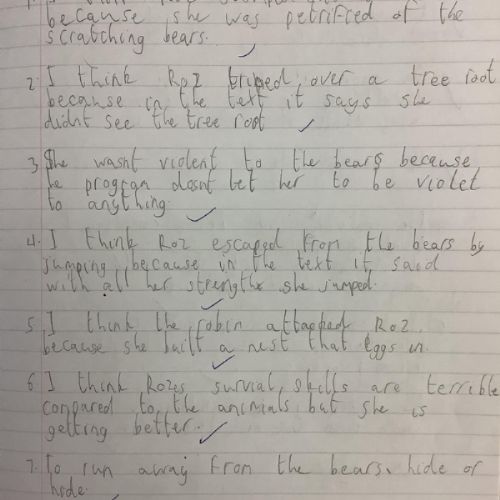 because she was petrified of the
scratching bears.
2. I think Roz tripped over a tree root
because in the text it says she
didnt see the tree root
3. She wasnt violent to the bears because
he program dosnt let her to be violet
to anything.
4. I think Roz escaped from the bears by
jumping, because in the text it said
with all her strengths she jumped.
5. I think the robin attacked Roz
because she built a nest that eggs in.
6. I think Rozes survial skills are terrible
compared to the animals but she is
getting better.
7. To run away from the bears, hide or
hide.